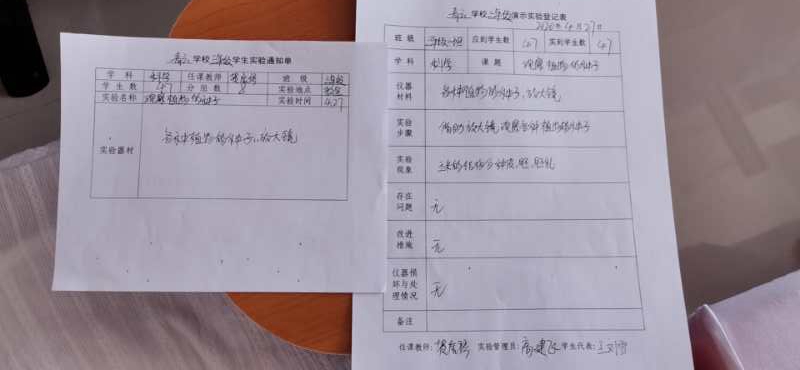 学校三年级学生实验通知单
学科 科学 任课教师 班级 三年级
学生数 47 分组数 8 实验地点 教室
实验名称 观察植物的种子 实验时间 4.27
实验器材 各种植物的种子、放大镜
学校三年级演示实验登记表
4月27日
班级 应到学生数 47 实到学生数 47
学科 科学 课题 观察植物的种子
仪器材料 各种植物的种子、放大镜
实验步骤 借助放大镜观察各种植物的种子
实验现象
存在问题 无
改进措施 无
仪器损坏与处理情况 无
备注
任课教师: 实验管理员: 学生代表: